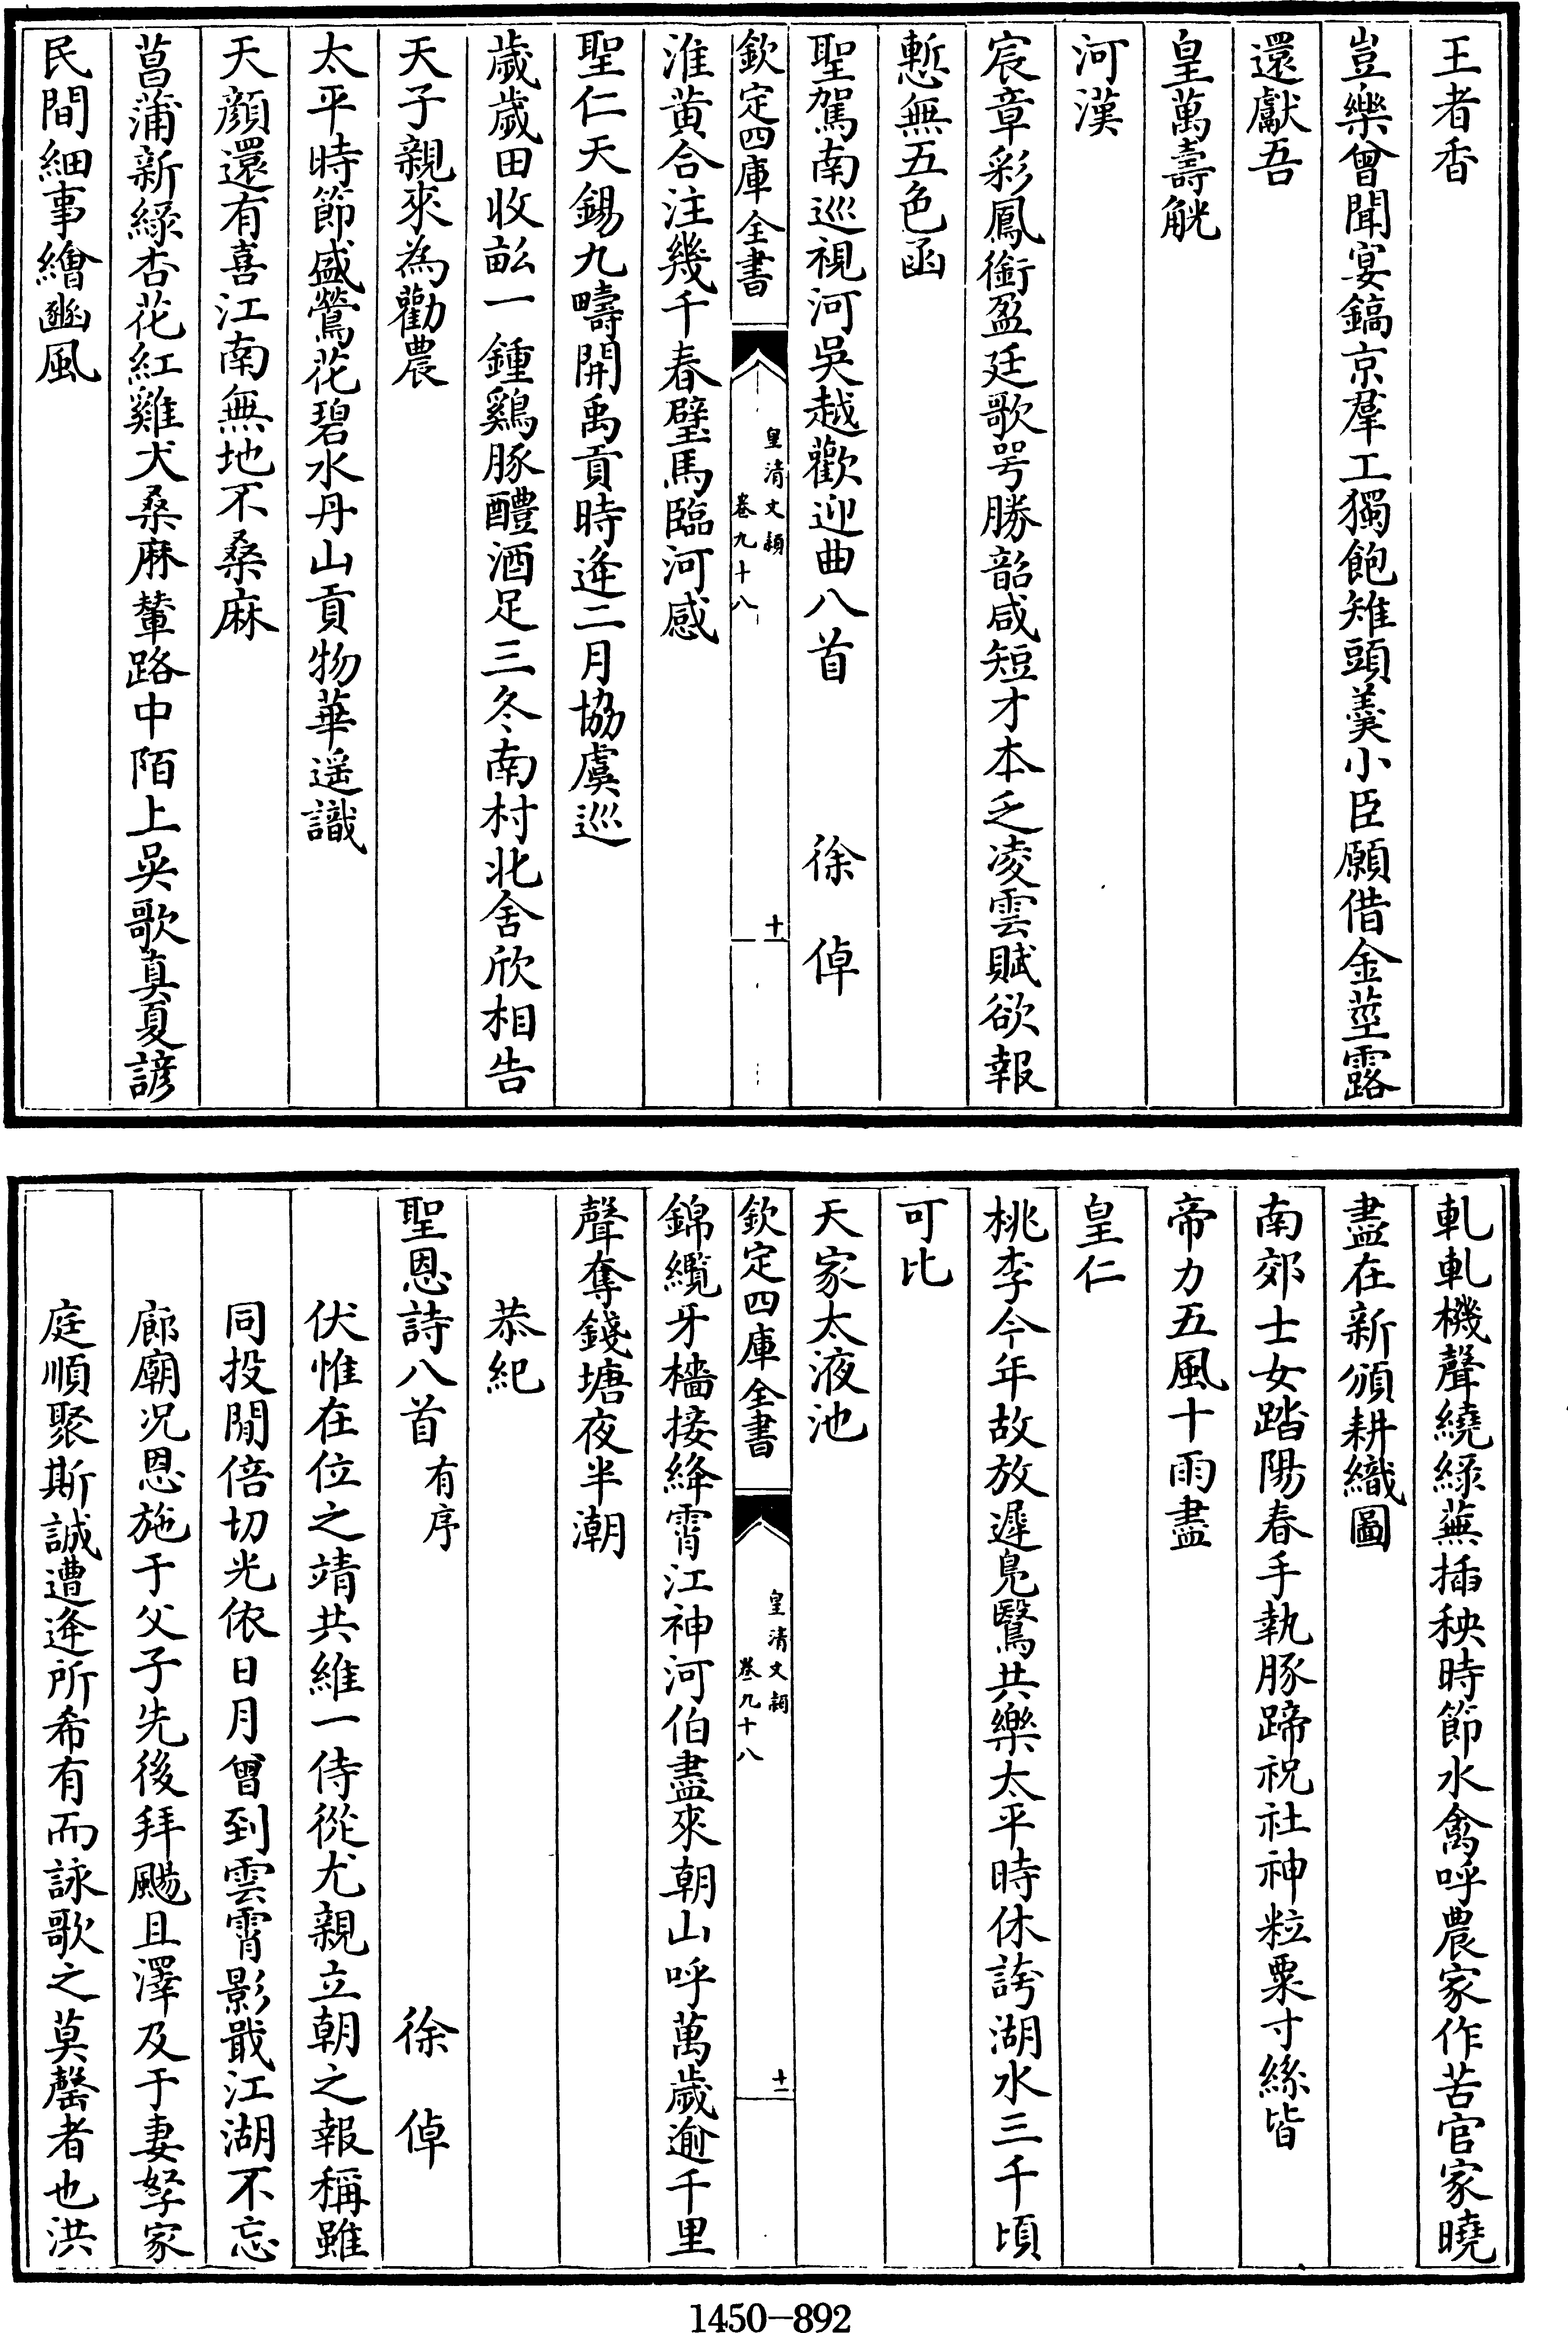 王者香
豈樂曾聞宴鎬京羣工獨飽雉頭羹小臣願借金莖露
還獻吾
皇萬壽觥
河漢
宸章彩鳳銜盈廷歌咢勝韶咸短才本乏凌雲賦欲報
慙無五色函
聖駕南巡視河吳越歡迎曲八首 徐倬
欽定四庫全書 皇清文穎 卷九十八 十
淮黄合注幾千春璧馬臨河感
聖仁天錫九疇開禹貢時逄二月協虞巡
歲歲田收畝一鍾鷄豚醴酒足三冬南村北舍欣相告
天子親來為勸農
太平時節盛鶯花碧水丹山貢物華遥識
天顔還有喜江南無地不桑麻
菖蒲新綠杏花紅雞犬桑麻輦路中陌上吳歌真夏諺
民間細事繪豳風
軋軋機聲繞綠蕪插秧時節水禽呼農家作苦官家曉
盡在新頒耕織圖
南郊士女踏陽春手執豚蹄祝社神粒粟寸絲皆
帝力五風十雨盡
皇仁
桃李今年故放遲鳧鷖共樂太平時休誇湖水三千頃
可比
天家太液池
欽定四庫全書 皇清文穎 卷九十八 十一
錦纜牙檣接絳霄江神河伯盡來朝山呼萬歲逾千里
聲奪錢塘夜半潮
恭紀
聖恩詩八首 有序 徐倬
伏惟在位之靖共維一侍從尤親立朝之報稱雖
同投閒倍切光依日月曾到雲霄影戢江湖不忘
廊廟况恩施于父子先後拜颺且澤及于妻孥家
庭順聚斯誠遭逄所希有而詠歌之莫罄者也洪
1450-892